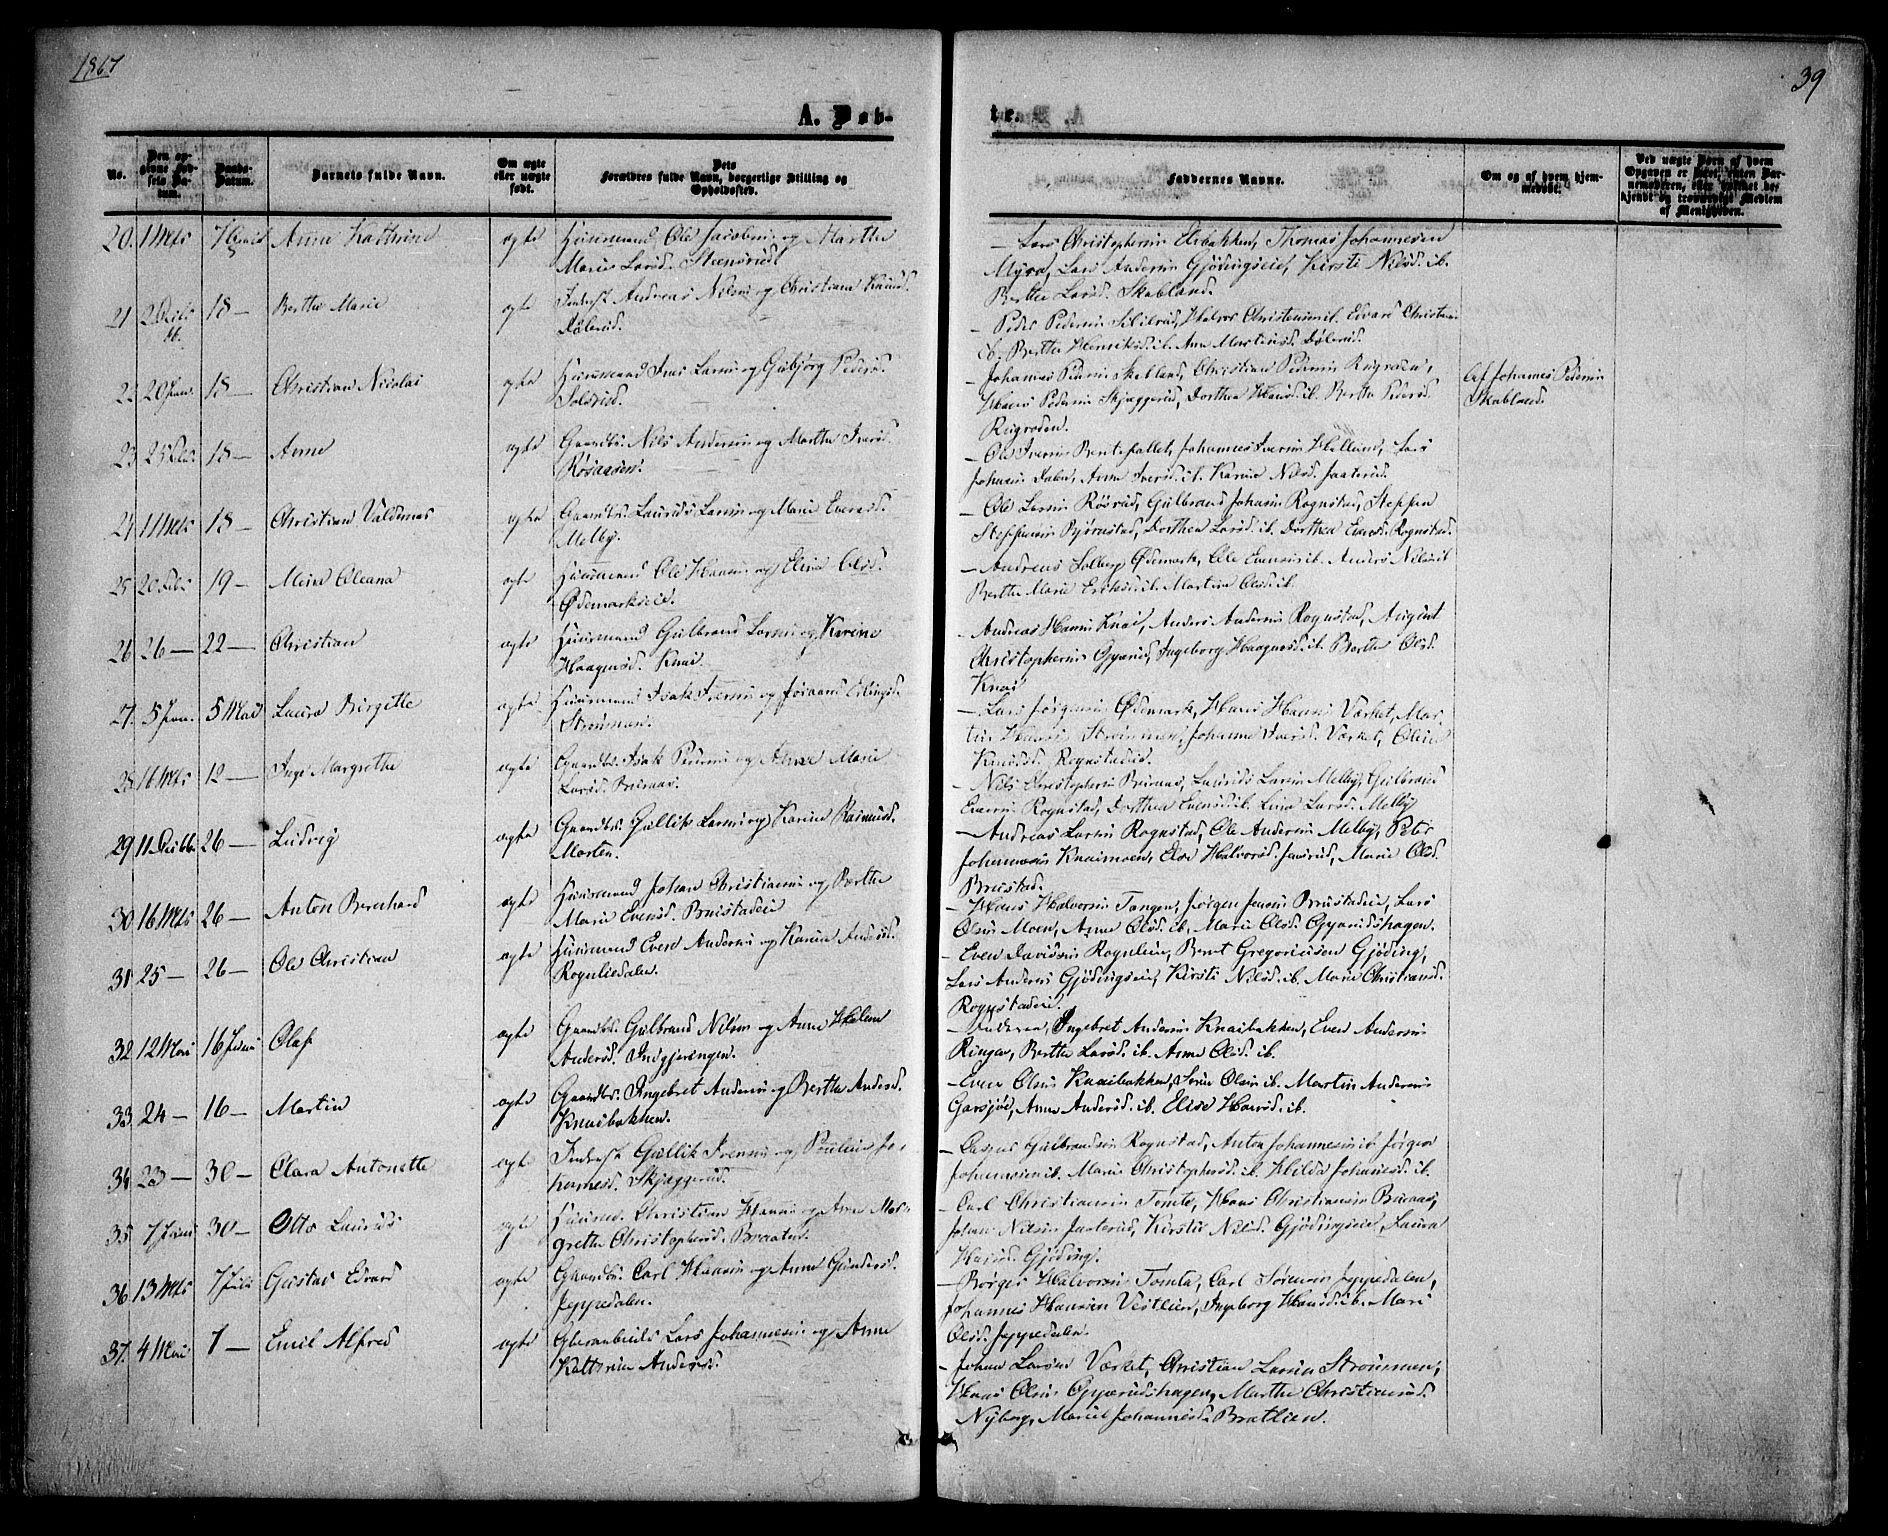 1867
39
A. Døb-
te.
No.
Den op-
givne Fød-
sels Da-
tum.
Daabs-
Datum.
Barnets fulde Navn.
Om ægte
eller uægte
født.
Dets
Forældres fulde Navn, borgerlige Stilling og
Opholdssted.
Faddernes Navne.
Om og af hvem hjem-
medøbt.
Ved uægte Børn af hvem
Opgaven er skeet, enten Bar-
nemoderen, eller hvilket be-
kjendt og troværdigt Medlem
af Menigheden.
20. 1 Mts 7 Anne Kathrine ægte Huusmand Ole Jacobsen og Marthe
Marie Larsd. Steensrud
— Lars Christophersen Elvbakken, Thomas Johannesen
Myra, Lars Andersen Gjødingseie, Kirsti Nilsd. ib.
Berthe Larsd. Skabland.
21 18 — Berthe Marie ægte Inderst Andreas Nilsen og Christiane Knudsd.
Dølerud.
— Peder Pedersen Halvor Christensen ib. Edvard Christensen
ib. Berthe Henriksd. ib. Ane Martinsd. Dølerud.
22 20 Jan. 18 — Christian Nicolai ægte Huusmand Larsen og Gubjørg Pedersd.
Solsrud.
Johannes Pedersen Skabland, Christian Pedersen Rugroden,
Hans Pedersen Skjæggerud, Dorthea Hansd. ib. Berthe Pedersd.
Rugroden.
Af Johannes Pedersen
Skabland.
23 25 18 — Anne ægte Gaardbr. Nils Andersen og Marthe Iversd.
Røsaasen.
— Ole Iversen Bentsfallet, Johannes Iversen Hellund, Lars
Johansen Dalen, Anne Iversd. ib. Karine Nilsd. Jaaterud.
24 1 Mts 18 — Christian Valdemar ægte Gaardbr. Laurids Larsen og Marie Evensd.
Melby.
— Ole Larsen Rørud, Gulbrand Johansen Rognstad, Steffen
Steffensen Bjørnstad, Dorthea Larsd. ib. Dorthea Evensd. Rognstad.
25 20 Feb. 19 — Oleana ægte Huusmand Ole Hansen og Eline Olsd.
Ødemarkseie.
— Andreas Solberg Ødemark, Ole Evensen ib. Anders Nilsen ib
Berthe Marie Eriksd. ib. Martine Olsd. ib.
26 26 — 22 — Christian ægte Huusmand Gulbrand Larsen og Karine
Haagensd. Knai.
— Andreas Hansen Knai, Anders Andersen Rognstad, August
Christophersen Gyerud, Ingeborg Haagensd. ib. Berthe Olsd.
Knai.
27. 5 Jan. 5 Mai Laura Birgitte ægte Huusmand Isak Iversen og Erlingsd.
Strømmen.
— Lars Jørgensen Ødemark, Hans Hansen Værket, Mar-
tin Hansen Strømmen, Johanne Iversd. Værket, Oline
Knudsd. Rognstadeie.
28. 16 Mts 12 — Inge Margrethe ægte Gaardbr. Isak Pedersen og Anne Marie
Larsd. Bruenæs.
— Nils Christophersen Laurids Larsen Melby, Gulbrand
Evensen Rognstad, Dorthea Evensd. ib. Lina Larsd. Melby
29 11 26 — Ludvig ægte Gaardbr. Gullik Larsen og Karine Rasmusd.
Morten.
— Andreas Larsen Rognstad, Ole Andersen Melby, Peter
Johannesen Knaimoen, Else Halvorsd. Marie Olsd.
Bruestad.
30 16 Mts 26 — Anton Bernhard ægte Huusmand Johan Christiansen og Berthe
Marie Evensd. Bruestadeie
— Hans Halvorsen Tangen, Jørgen Jensen Bruestadeie, Lars
Olsen Moen, Anne Olsd. ib, Marie Olsd. Gyerudshagen.
31 25 — 26 — Ole Christian ægte Huusmand Even Andersen og Karine Andersd.
Rognliedalen.
— Even Davidsen Rognlien, Bent Gregoriusen Gjøding,
Lars Andersen Gjødingseie, Kirsti Nilsd. ib. Marie Christiansd.
Rognstadeie.
32 12 Mai 16 Juni Olaf ægte Gaardbr. Gulbrand Nilsen og Anne Helene
Andersd.
— Faderen, Ingebret Andersen Knaibakken, Even Andersen
Ringen, Berthe Larsd. ib. Anne Olsd. ib.
33 24 — 16 — Martin ægte Gaardbr. Ingebret Andersen og Berthe Andersd.
Knaibakken.
— Even Olsen Knaibakken, Olsen ib. Martin Andersen
Garsjøe, Anne Andersd. ib. Elise Hansd. ib.
34 23 — 30 — Clara Antonette ægte Inderst Gullik Iversen og Pauline Jo-
hannesd. Skjæggerud.
— Casper Gulbrandsen Rognstad, Anton Johannesen ib Jørgen
Johannesen ib. Marie Christophersd. ib. Hilda Johannesd. ib.
35 7 Juni 30 — Otto Laurids ægte Huusmd. Christian Hansen og Anne Mar-
grethe Christophersd. Braaten.
— Carl Christiansen Tomte, Hans Christiansen
Johan Nilsen Jaaterud, Kirstie Nilsd. Gjødingseie, Laura
Hansd. Gjøding.
36 13 Mts 7 Juli Gustav Edvard ægte Gaardbr. Carl Hansen og Anne Gundersd.
Jeppedalen.
— Børger Halvorsen Tomta, Carl Sørensen Jeppedalen,
Johannes Hansen Vestlien, Ingeborg Hansd. ib. Mari
Olsd. Jeppedalen.
37. 4 Mai 7 — Emil Alfred ægte Lars Johannesen og Anne
Kathrine Andersd.
— Johan Larsen Værket, Christian Larsen Strømmen,
Hans Olsen Gyerudshagen, Marthe Christiansd.
Nyborg, Marie Johannesd. Bratlien.